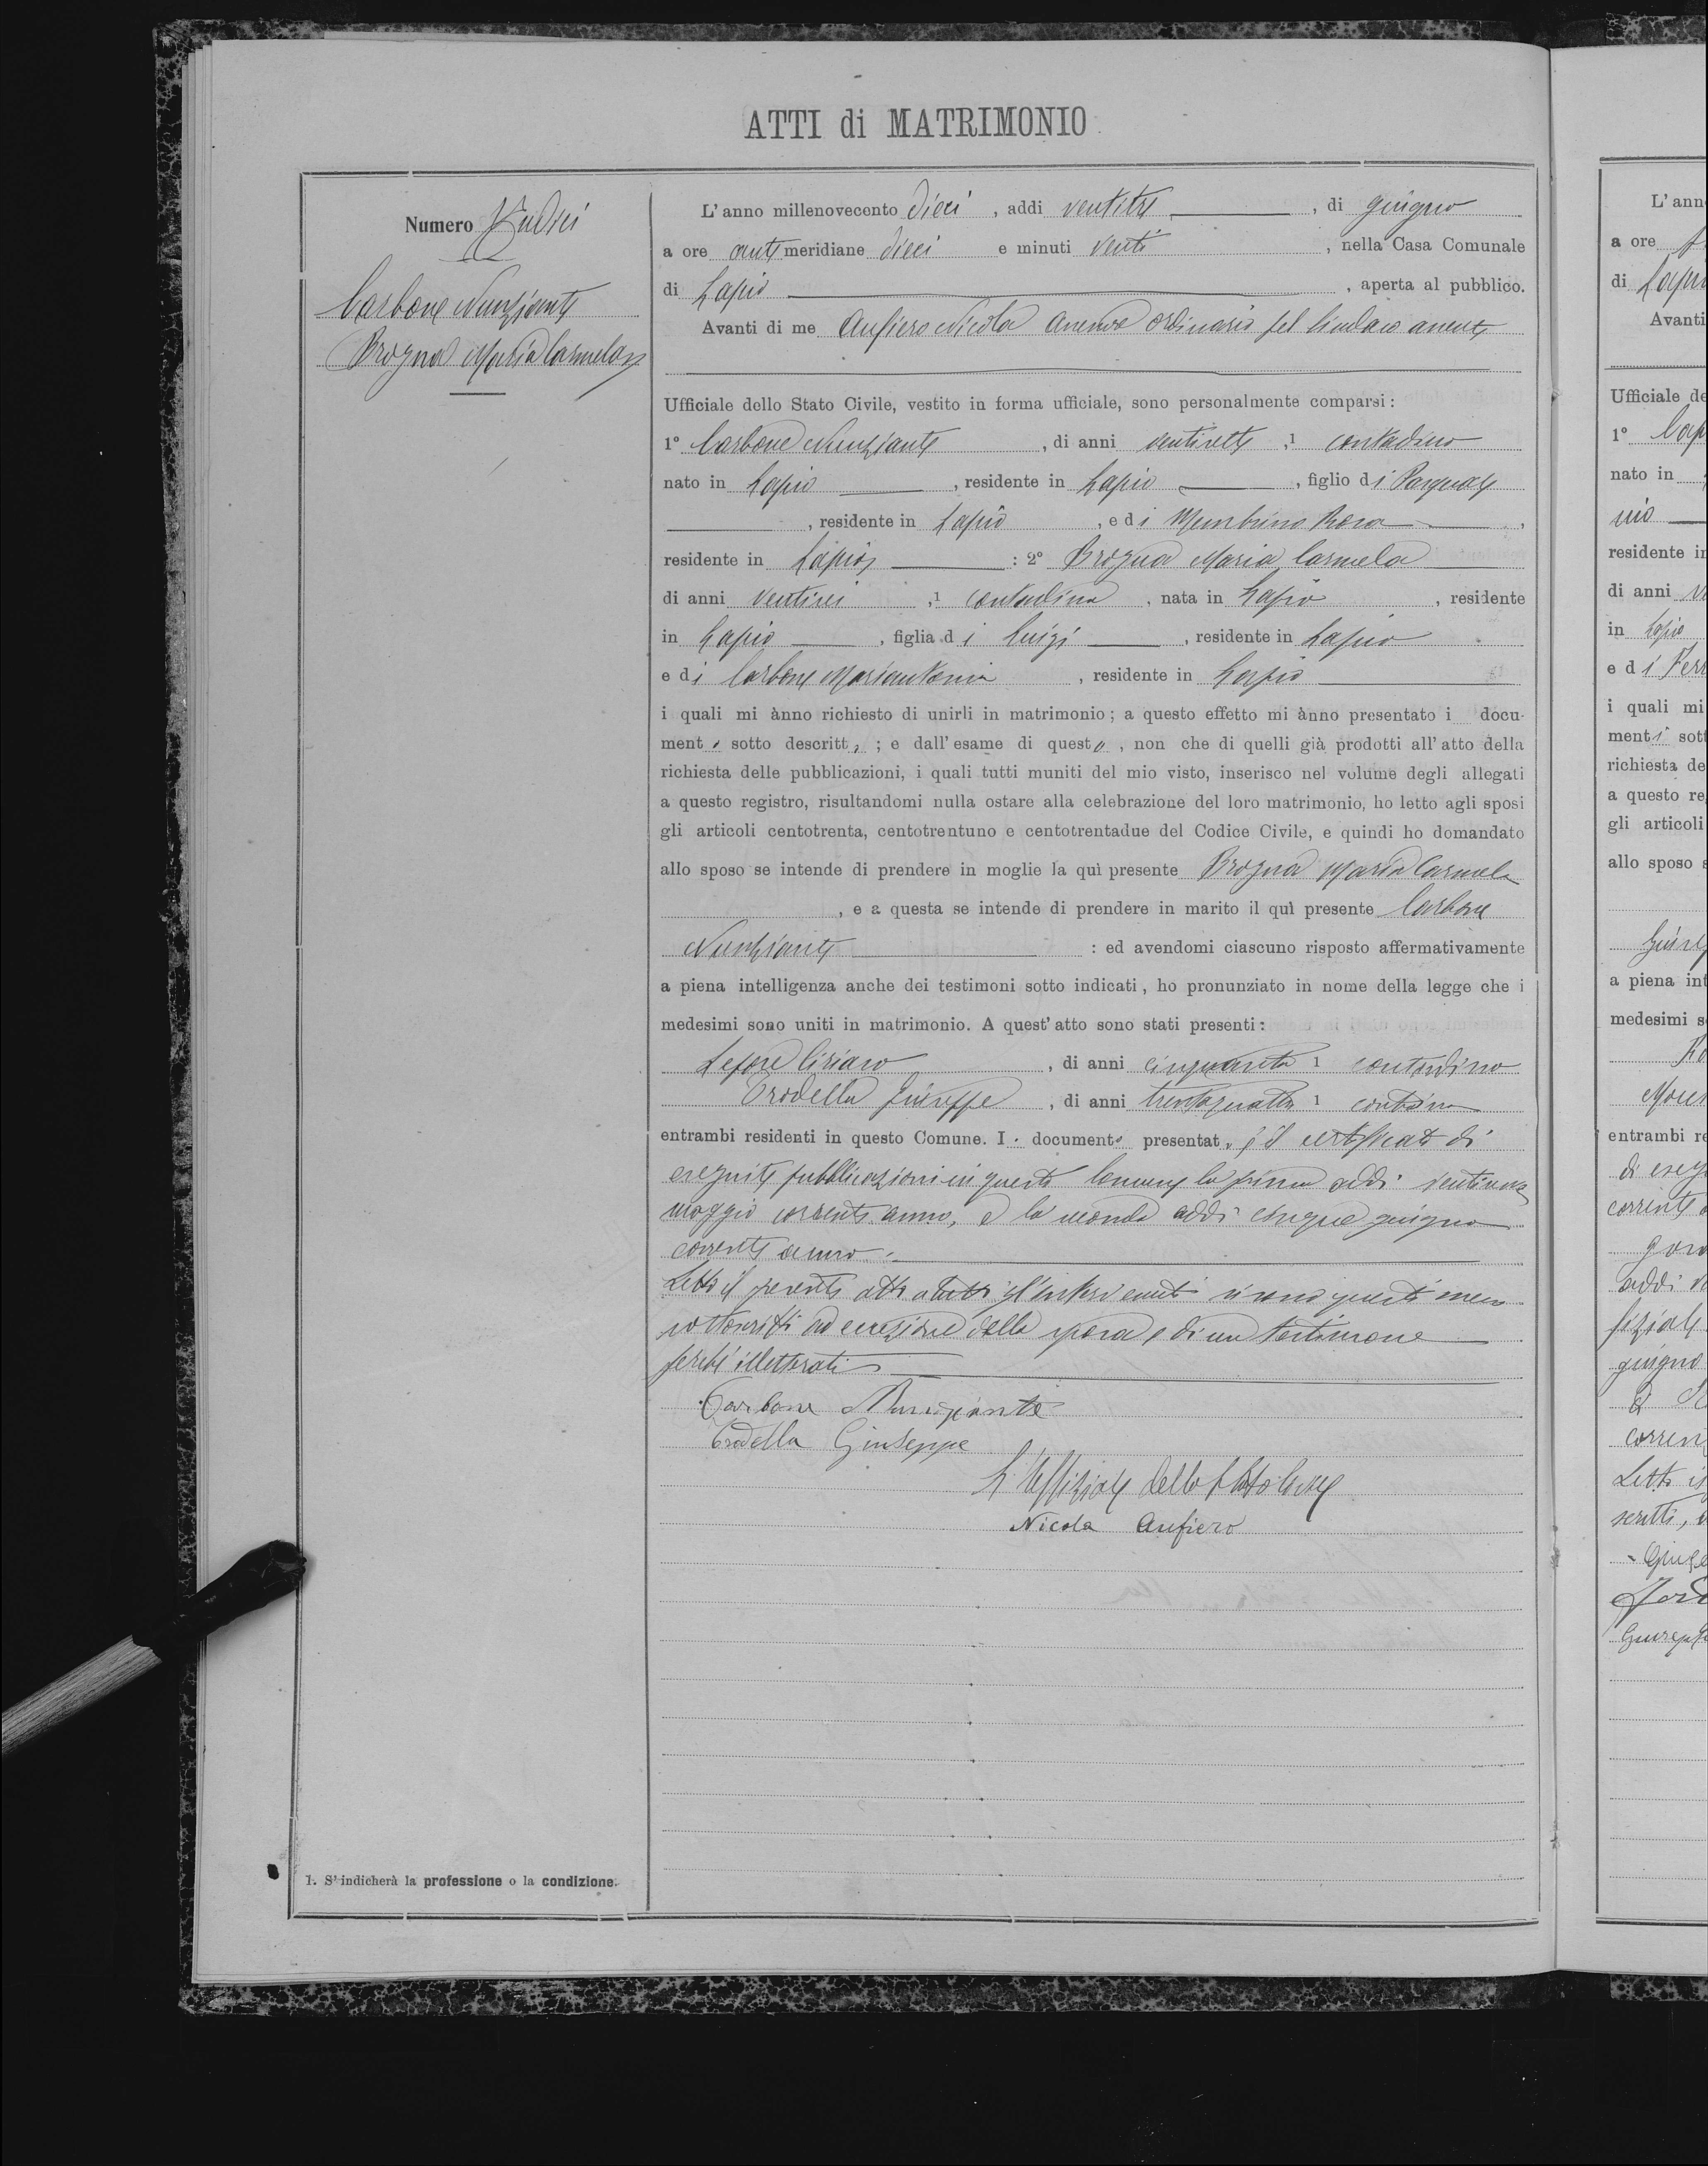 ATTI di MATRIMONIO
Numero
Carbone Nunziante
Brogna Maria Carmela
L'anno millenovecento dieci, addi ventitre, di giugno
a ore antimeridiane dieci e minuti venti, nella Casa Comunale
di Lapio, aperta al pubblico.
Avanti di me Anfiero Nicola ordinario pel Sindaco assente
Ufficiale dello Stato Civile, vestito in forma ufficiale, sono personalmente comparsi:
1º Carbone Nunziante, di anni ventisette, 1 contadino
nato in Lapio, residente in Lapio, figlio di Pasquale
, residente in Lapio, e di Rosa,
residente in Lapio: 2º Brogna Maria Carmela
di anni ventisei, 1 contadina, nata in Lapio, residente
in Lapio, figlia di Luigi, residente in Lapio
e di Carbone Mariantonia, residente in Lapio
i quali mi ànno richiesto di unirli in matrimonio; a questo effetto mi ànno presentato i docu-
mento sotto descritto; e dall'esame di questo, non che di quelli già prodotti all'atto della
richiesta delle pubblicazioni, i quali tutti muniti del mio visto, inserisco nel volume degli allegati
a questo registro, risultandomi nulla ostare alla celebrazione del loro matrimonio, ho letto agli sposi
gli articoli centotrenta, centotrentuno e centotrentadue del Codice Civile, e quindi ho domandato
allo sposo se intende di prendere in moglie la quì presente Brogna Maria Carmela
, e a questa se intende di prendere in marito il quì presente Carbone
Nunziante: ed avendomi ciascuno risposto affermativamente
a piena intelligenza anche dei testimoni sotto indicati, ho pronunziato in nome della legge che i
medesimi sono uniti in matrimonio. A quest'atto sono stati presenti:
Lepore Ciriaco, di anni cinquanta 1 contadino
Trodella Giuseppe, di anni trentaquattro 1
entrambi residenti in questo Comune. I documento presentato è il certificato di
eseguite pubblicazioni in questo Comune la prima addì ventinove
maggio corrente anno, e la seconda addì cinque giugno
corrente anno.
Letto il presente atto a tutti gl'intervenuti si sono questi meco
sottoscritti ad eccezione della sposa e di un testimone
perchè illetterati
Carbone Nunziante
Trodella Giuseppe
L'Uffiziale dello Stato Civile
Nicola Anfiero
1. S'indicherà la professione o la condizione.
L'ann
a ore
di Lapio
Avanti
Ufficiale de
1º
nato in
nio
residente in
di anni
in Lapio
e di
i quali mi
menti sott
richiesta de
a questo re
gli articoli
allo sposo s
a piena int
medesimi s
entrambi re
di eseg
corrente
addi
giugno
corren